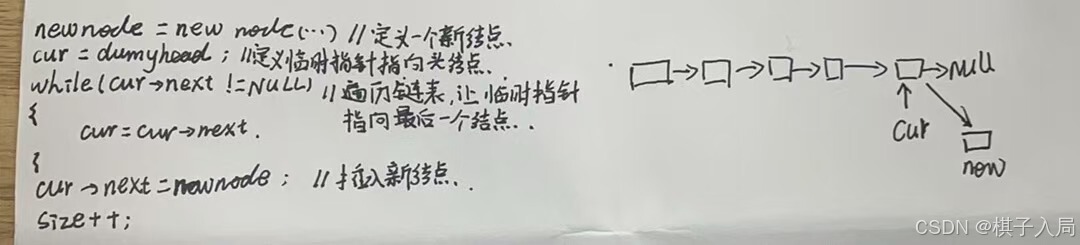 newnode = new node(…) //定义一个新结点.
cur = dumyhead ; //定义临时指针指向头结点.
while(cur→next !=NULL) //遍历链表,让临时指针
{ 指向最后一个结点..
cur=cur→next.
{
cur→next=newnode ; //插入新结点..
size++;
null
cur
new
CSDN @棋子入局